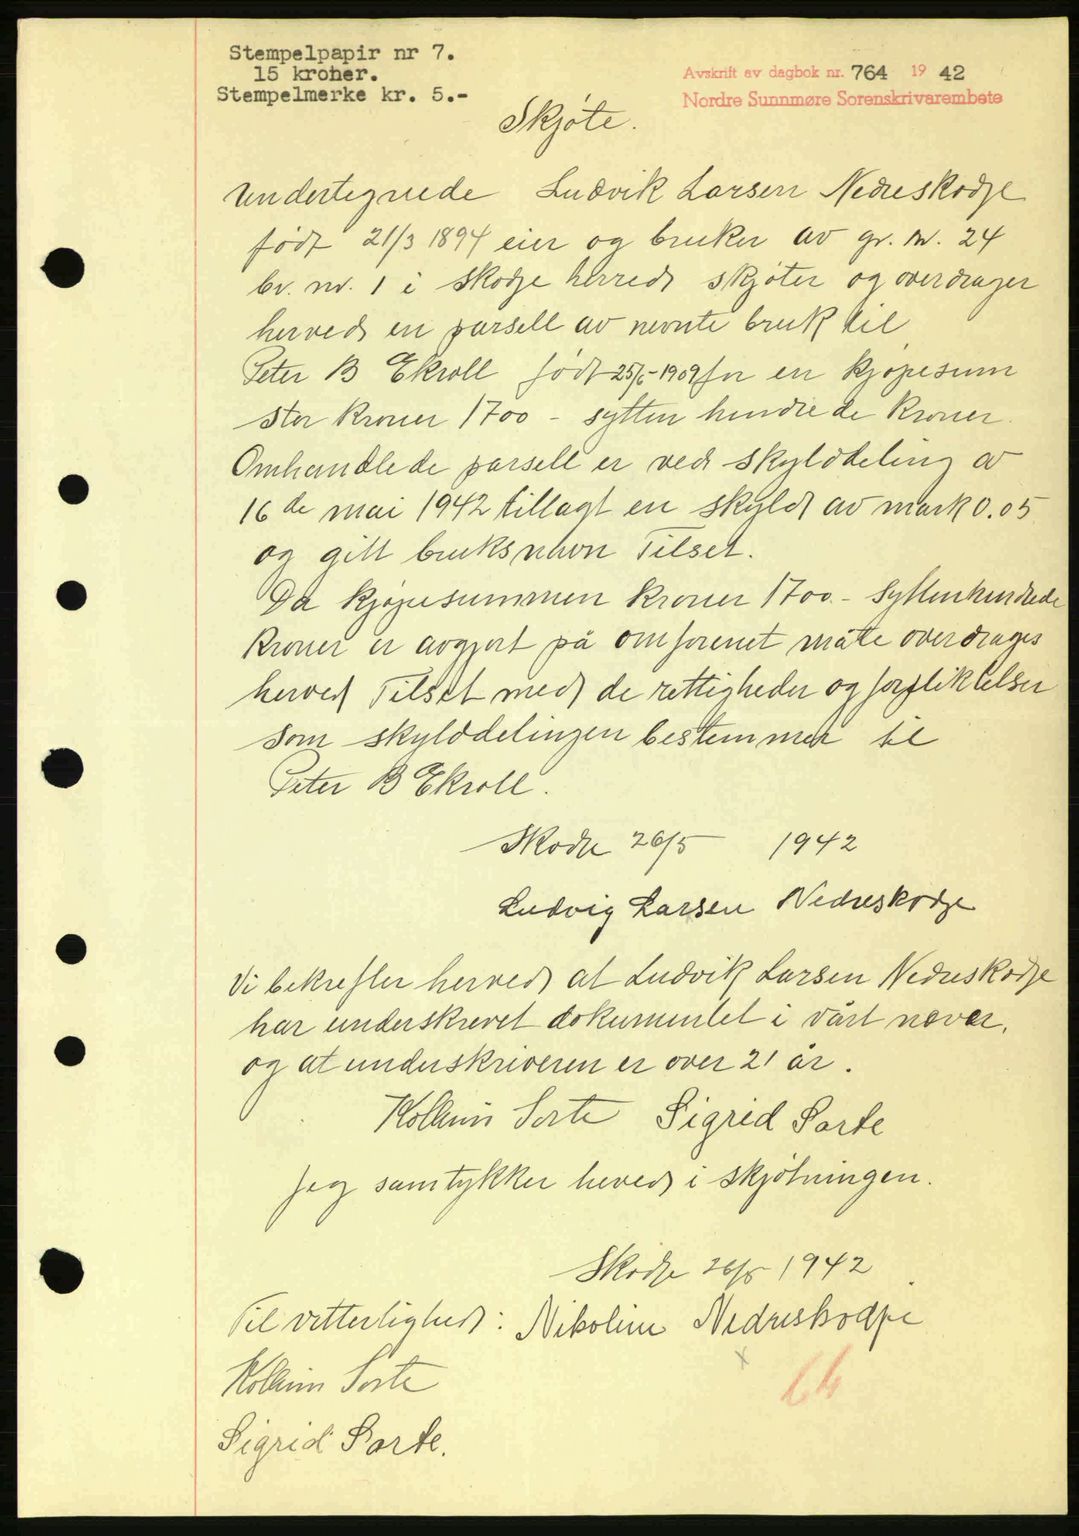 Stempelpapir nr 7.
15 kroner.
Stempelmerke kr. 5.-
Avskrift av dagbok nr. 764 1942
Nordre Sunnmøre Sorenskrivarembete
Skjøte.
Undertegnede Ludvik Larsen Nedreskodje
født 21/3 1894 eier og bruker av gr. nr. 24
br. nr. 1 i Skodje herred skjøter og overdrager
herved en parsell av nevnte bruk til
Peter B Ekroll født 25/6-1909 for en kjøpesum
stor kroner 1700 - sytten hundrede kroner.
Omhandlede parsell er ved skylddeling av
16de mai 1942 tillagt en skyld av mark 0.05
og gitt bruksnavn Tilset.
Da kjøpesummen kroner 1700.- syttenhundrede
kroner er avgjort på omforenet måte overdrages
herved Tilset med de rettigheder og forpliktelser
som skylddelingen bestemmer til
Peter B Ekroll.
Skodje 26/5 1942
Ludvig Larsen Nedreskodje
Vi bekrefter herved at Ludvik Larsen Nedreskodje
har underskrevet dokumentet i vårt nærvær,
og at underskriveren er over 21 år.
Sorte Sigrid Sorte
Jeg samtykker herved i skjøtningen.
Skodje 26/5 1942
Til vitterlighed: Nikoline Nedreskodje
x
Sorte
Sigrid Sorte.